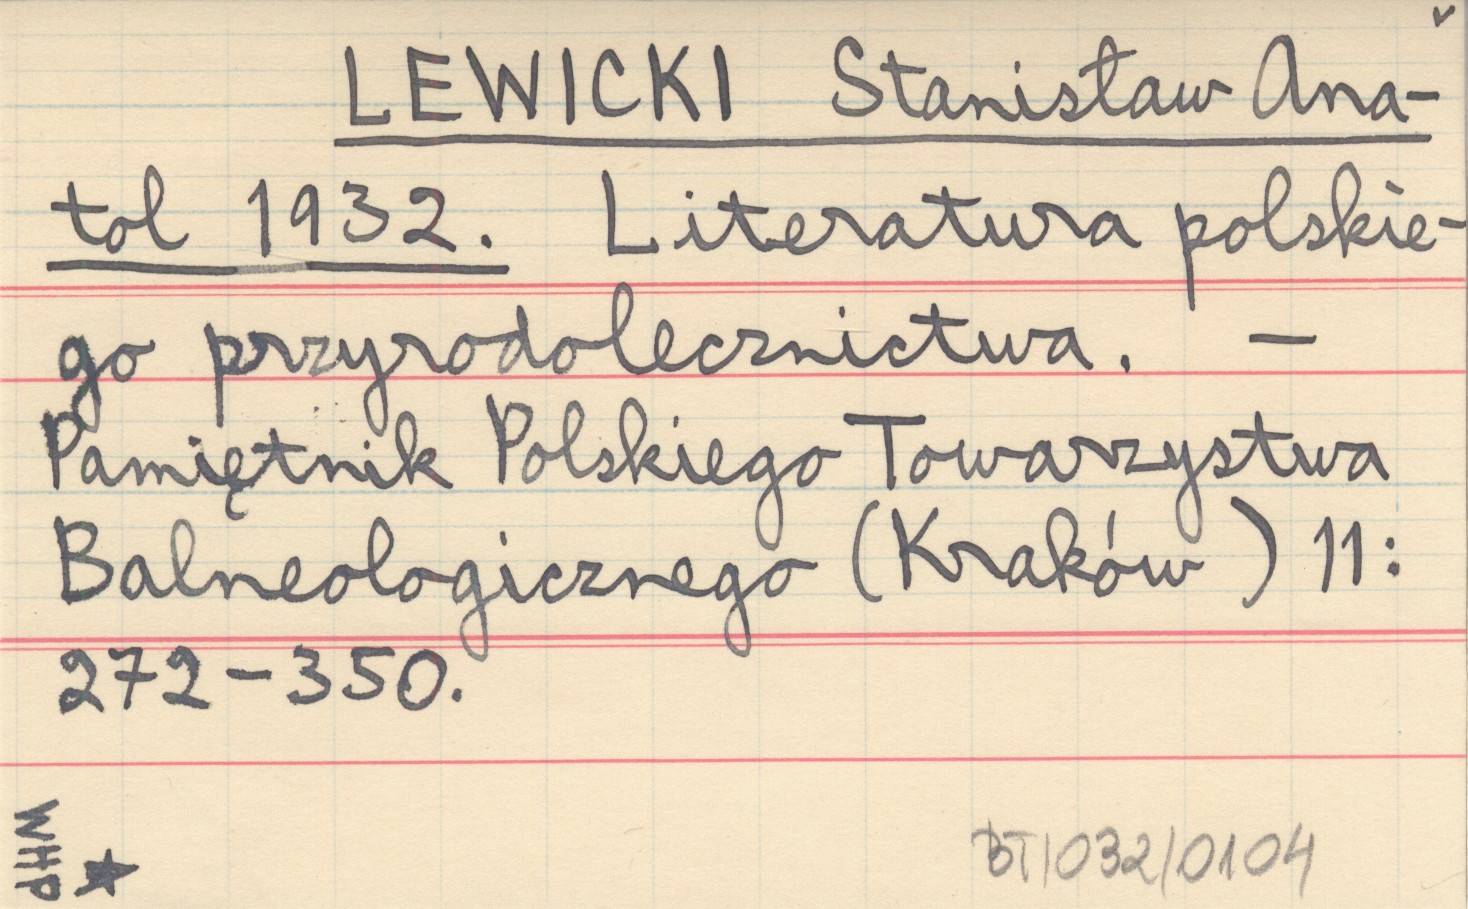 LEWICKI Stanisław Ana-
tol 1932. Literatura polskie-
go przyrodolecznictwa. —
Pamiętnik Polskiego Towarzystwa
Balneologicznego (Kraków) 11:
272-350.
WHP ★
BT/032/0104